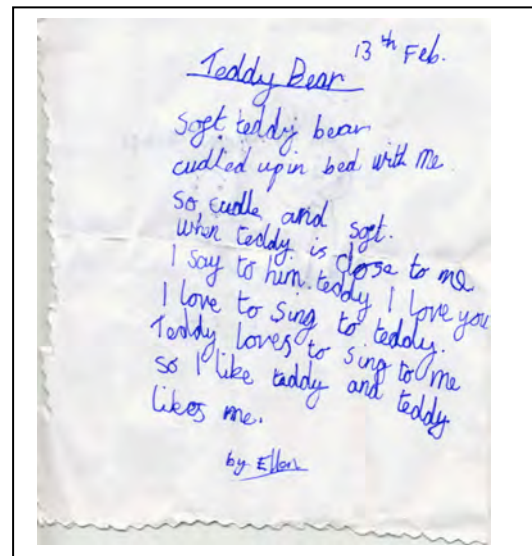 13th Feb.
Teddy Bear
Soft teddy bear
cudled up in bed with me.
so cudle and soft.
when teddy is close to me
I say to him teddy I love you
I love to sing to teddy.
Teddy loves to sing to me
so I like teddy and teddy
likes me.
by Ellen